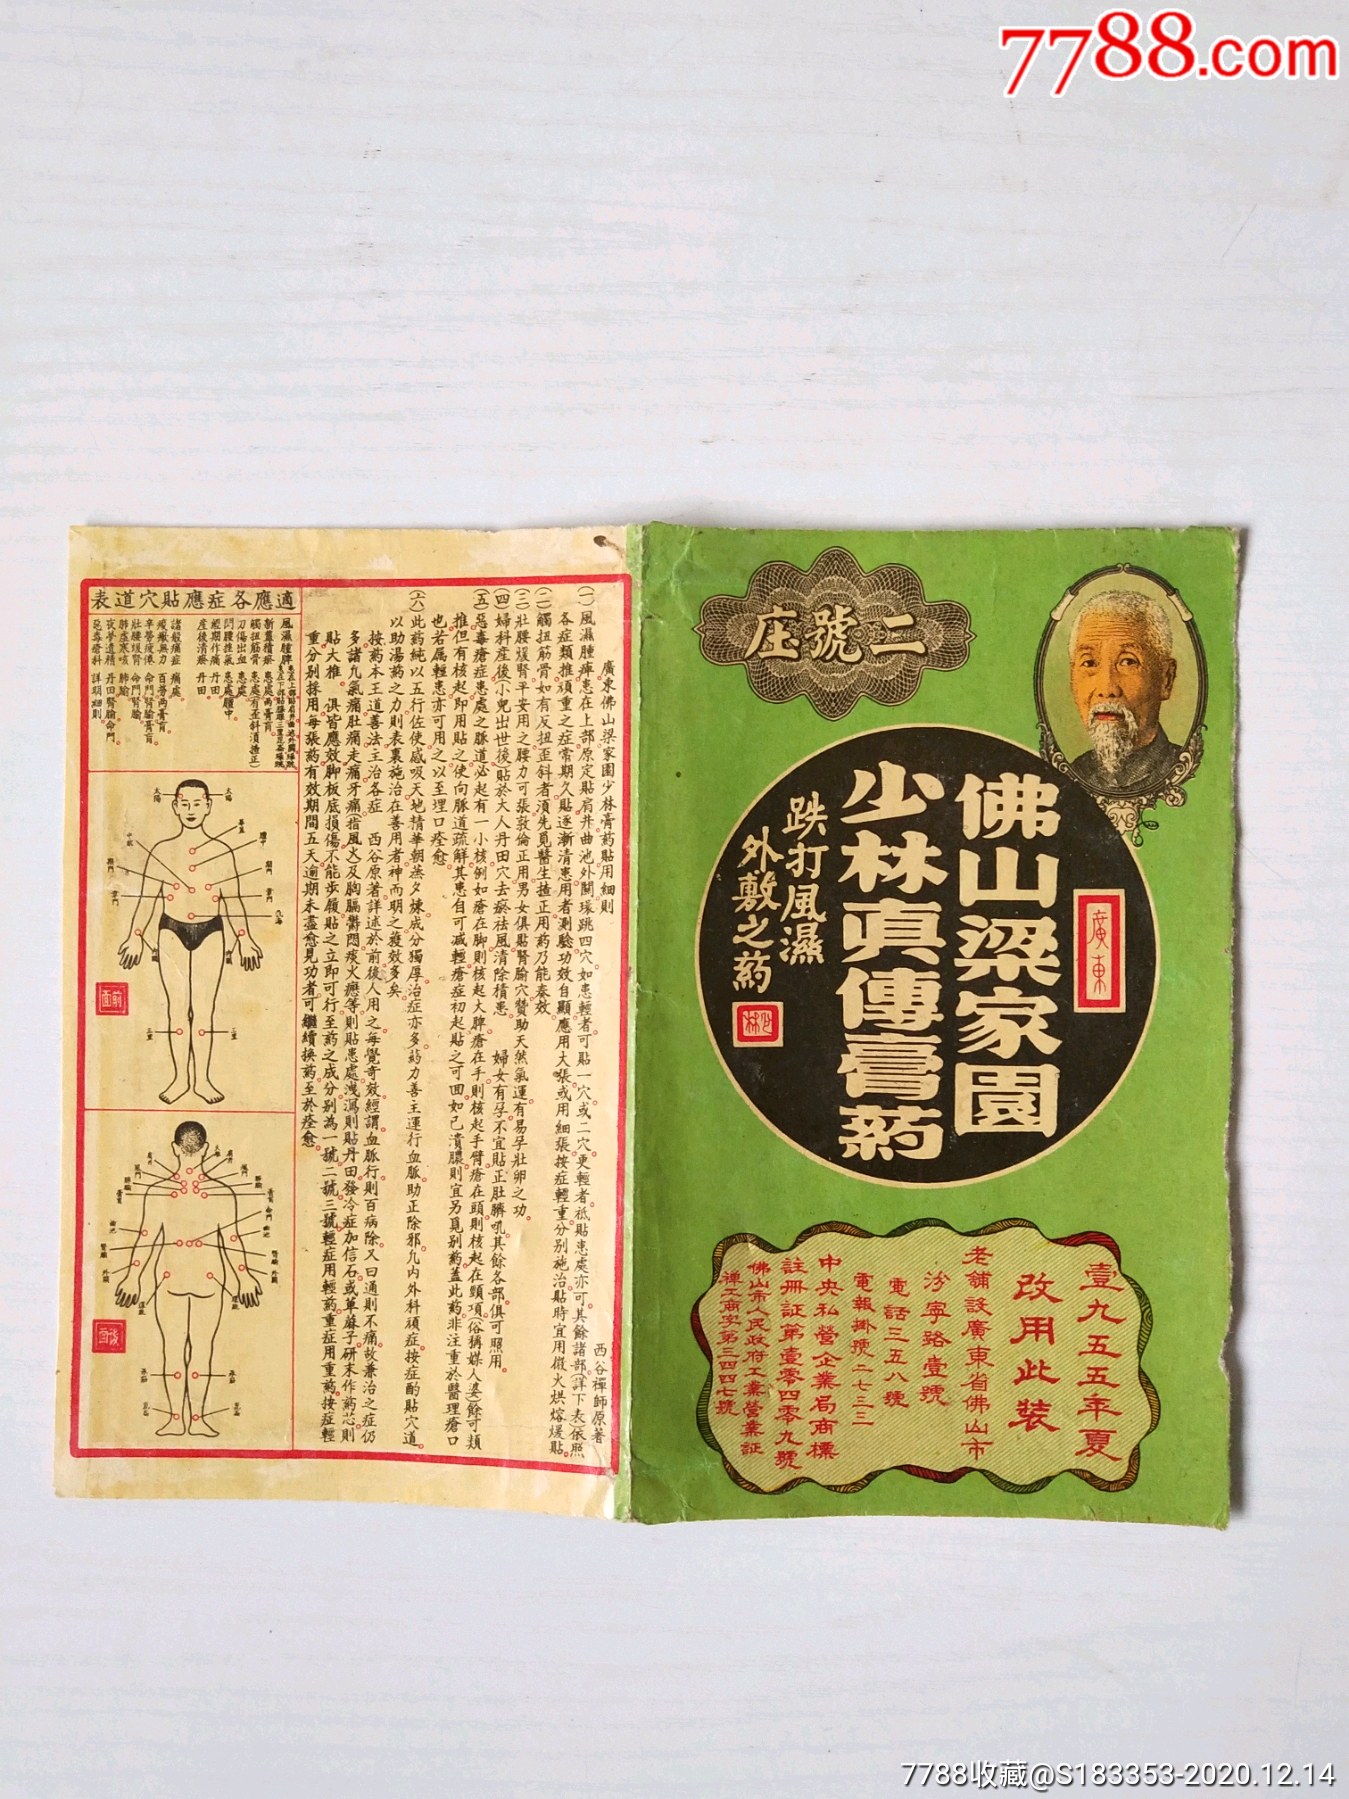 7788.com
二號庄
廣東
佛山梁家園
少林真傳膏葯
跌打風濕
外敷之葯
少林
壹九五五年夏
改用此裝
老舖設廣東省佛山市
汾寧路壹號
電話三五八號
電報掛號二七三三
中央私營企業局商標
註冊証第壹零四零九號
佛山市人民政府工業營業証
禪工商字第三四四七號
廣東佛山梁家園少林膏葯貼用細則
西谷禪師原著
(一)風濕腫痺患在上部原定貼肩井曲池外關環跳四穴如患輕者可貼一穴或二穴更輕者祗貼患處亦可其餘諸部(詳下表)依照
各症類推頑重之症常期久貼逐漸清患用者測驗功效自顯應用大張或用細張按症輕重分别施治貼時宜用微火烘熔煖貼
(二)觸扭筋骨如有反扭歪斜者須先覓醫生揸正用葯乃能奏效
(三)壯腰煖腎平安用之腰力可張敦倫正用男女俱貼腎腧穴贊助天然氣運有易孕壯卵之功
(四)婦科產後小兒出世後貼於大人丹田穴去瘀祛風清除積患 婦女有孕不宜貼正肚臍吼其餘各部俱可照用
(五)惡毒瘡症患處之脈道必起有一小核例如瘡在脚則核起大脾瘡在手則核起手臂瘡在頭則核起在頸項(俗稱媒人婆)餘可類
推但有核起即用貼之使向脈道疏解其患自可减輕瘡症初起貼之可囬如已潰膿則宜另覓别葯蓋此葯非注重於醫理瘡口
也若属輕患亦可用之以至埋口痊愈
(六)此葯純以五行佐使感吸天地精華朝蒸夕煉成分獨厚治症亦多葯力善主運行血脈助正除邪凢内外科頑症按症酌貼穴道
以助湯葯之力則表裏施治在善用者神而明之獲效多矣
按葯本王道善法主治各症 西谷原著詳述於前後人用之每覺奇效經謂血脈行則百病除又曰通則不痛故兼治之症仍
多諸凢氣痛肚痛走痛牙痛(指風火)及胸膈鬱悶痰火癧等則貼患處洩瀉則貼丹田發冷症加信石或草蔴子研末作葯芯則
貼大椎 俱皆應效脚板底損傷不能步履貼之立即可行至葯之成分别為一號二號三號輕症用輕葯重症用重葯按症輕
重分别採用每張葯有效期間五天逾期未盡愈見功者可繼續換葯至於痊愈
適應各症應貼穴道表
新舊積瘀 患處兩膏肓
觸扭筋骨 患處(有歪斜須揸正)
刀傷出血 患處
閃腰挫氣 患處腰中
經期作痛 丹田
產後清瘀 丹田
諸般痛症 痛處
痠軟無力 百勞兩膏肓
辛勞疲倦 命門腎腧膏肓
壯腰煖腎 命門腎腧
肺虛寒咳 肺腧
夜夢遺精 丹田腎腧命門
惡毒瘡科 詳明細則
太陽
太陽
前面
後面
7788收藏@S183353-2020.12.14